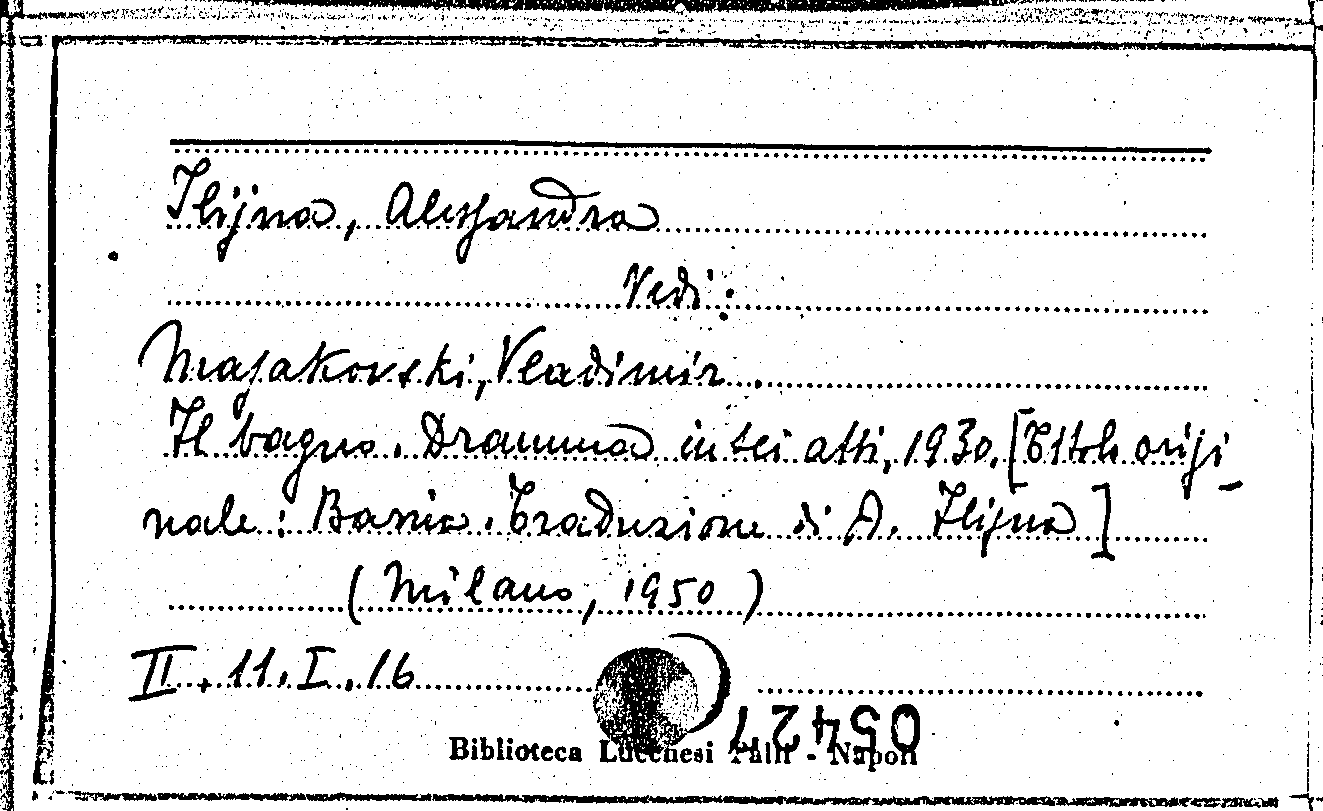 Ilijna, Alessandra
Vedi:
Majakovski, Vladimir.
Il bagno. Dramma in sei atti, 1930. [Titolo origi-
nale: Banja. Traduzione di A. Ilijna]
(Milano, 1950)
II. 11. I. 16
05427
Biblioteca Lucchesi Palli - Napoli